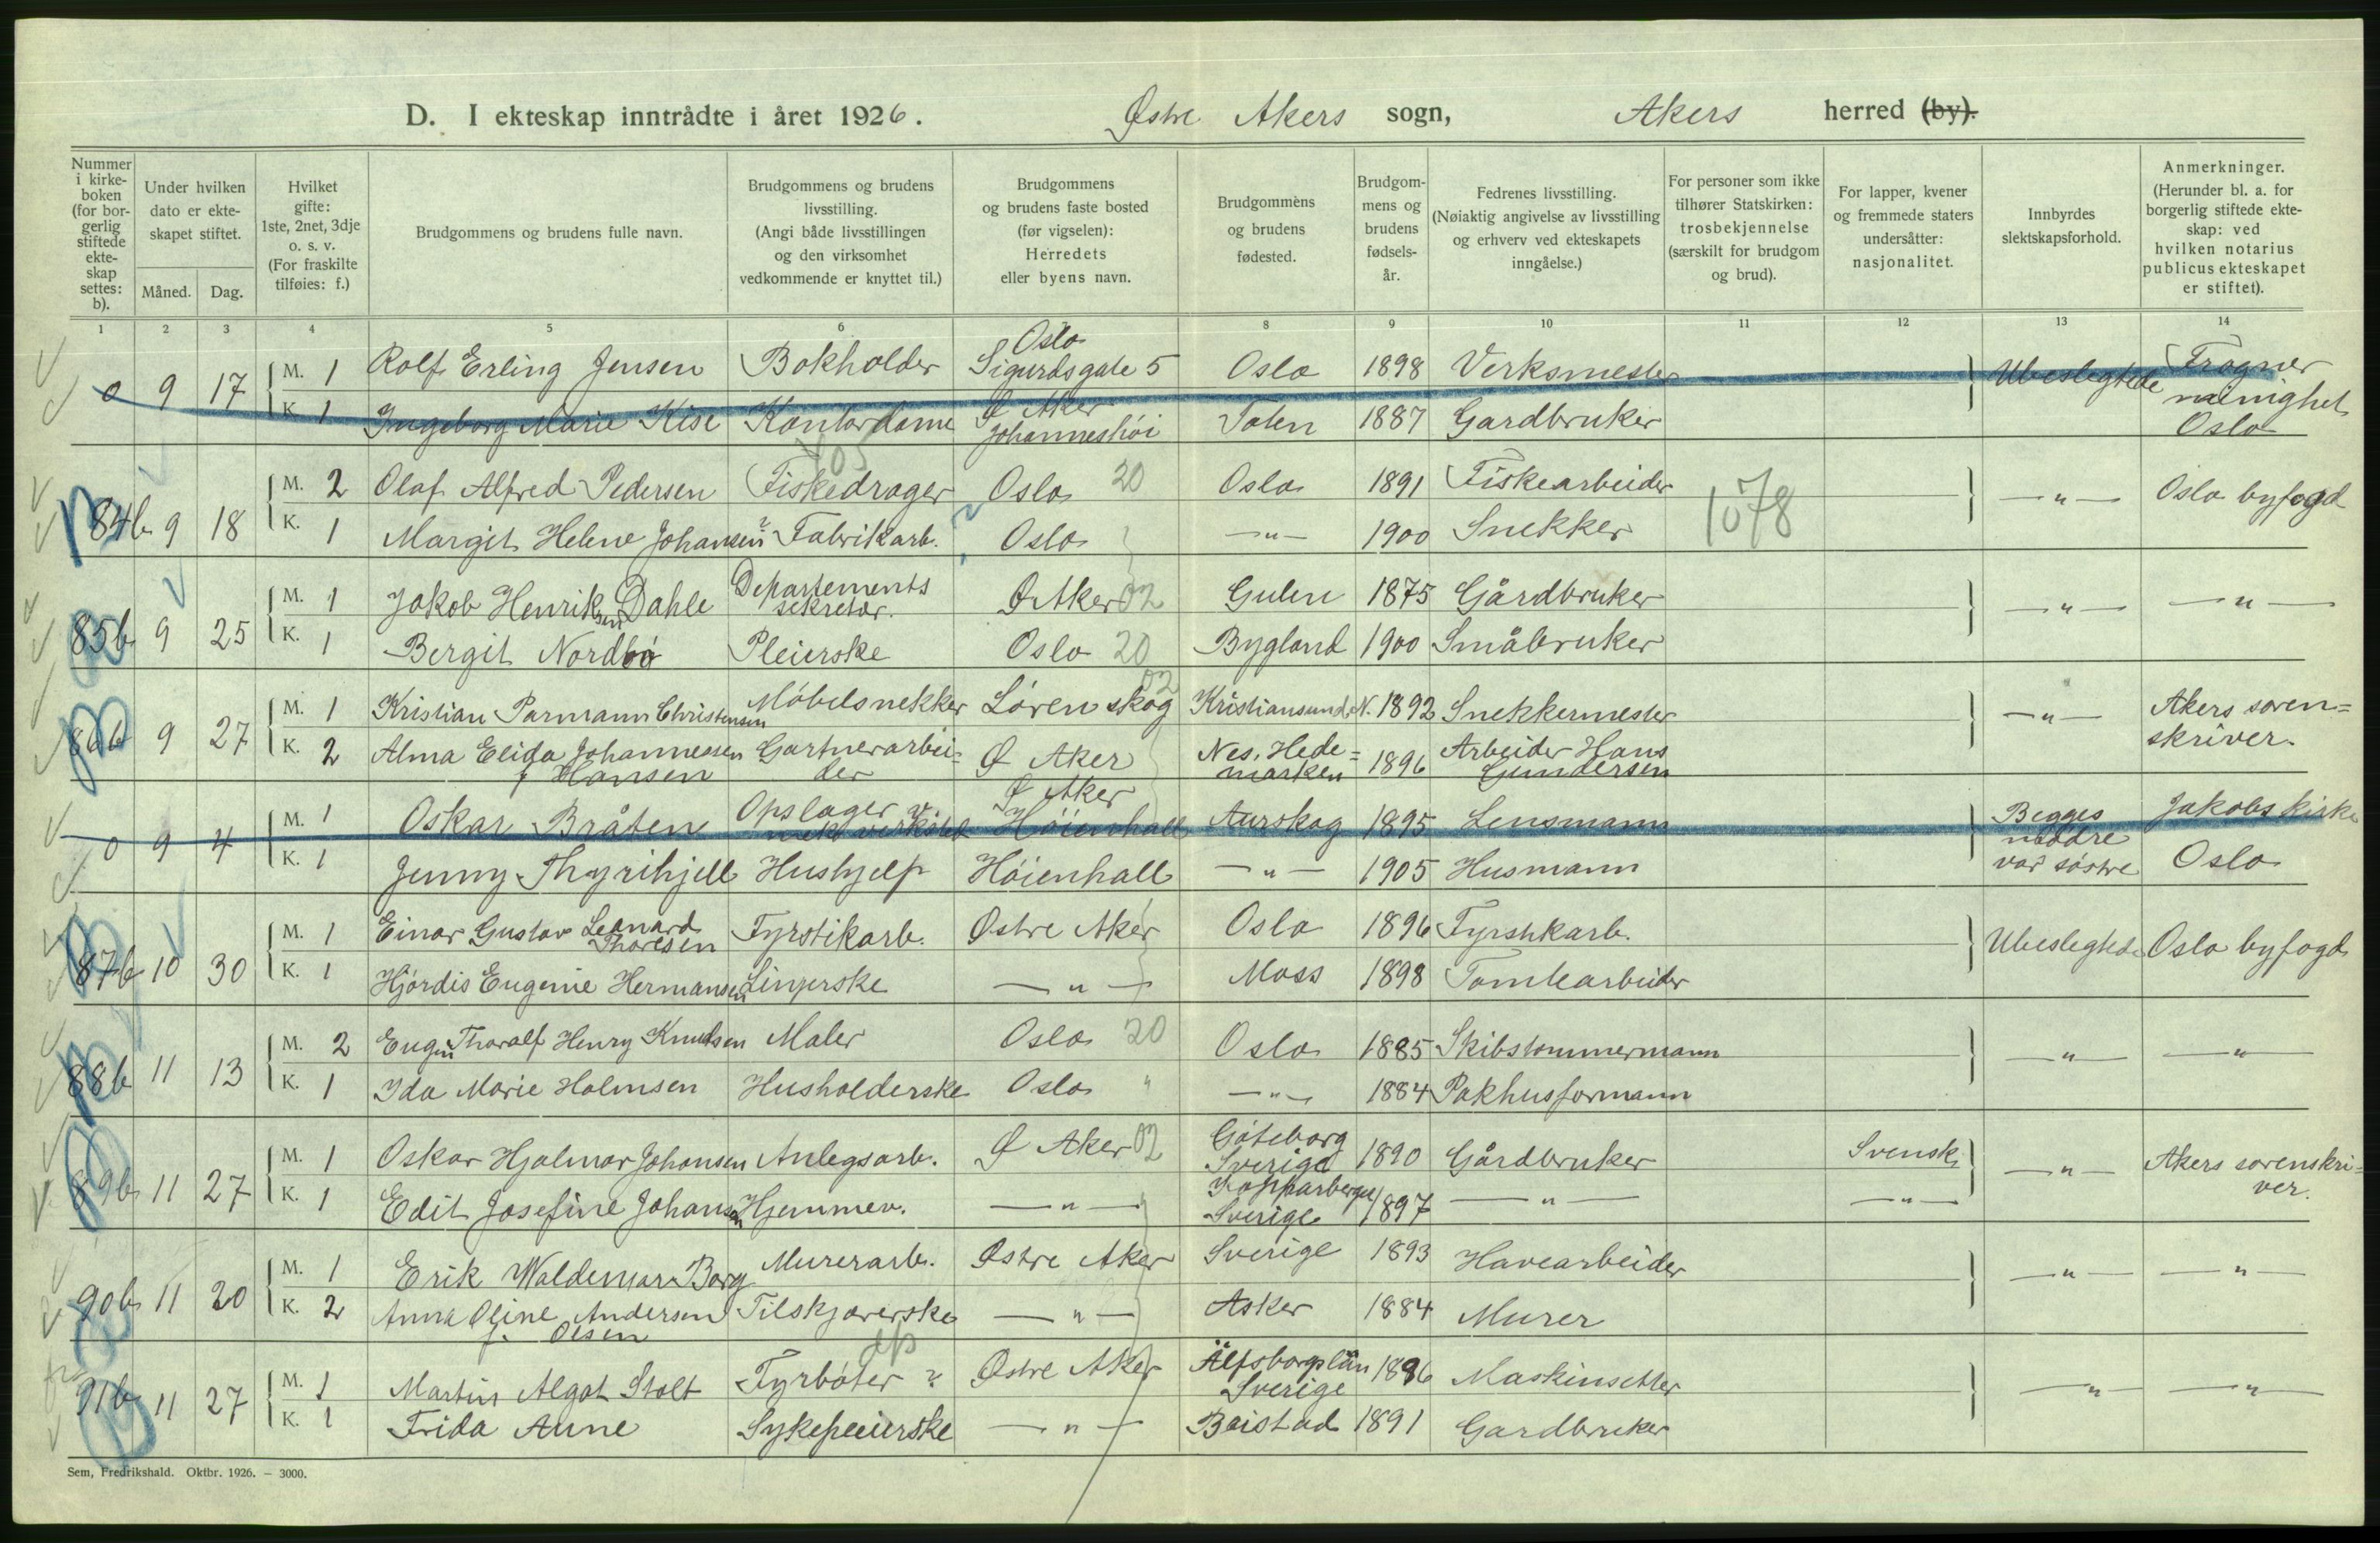 D. I ekteskap inntrådte i året 1926. Østre Akers sogn, Akers herred (by).
Nummer i kirkeboken (for borgerlig stiftede ekteskap settes: b).
Under hvilken dato er ekteskapet stiftet.
Måned. Dag.
Hvilket gifte: 1ste, 2net, 3dje o. s. v. (For fraskilte tilføies: f.)
Brudgommens og brudens fulle navn.
Brudgommens og brudens livsstilling. (Angi både livsstillingen og den virksomhet vedkommende er knyttet til.)
Brudgommens og brudens faste bosted (før vigselen): Herredets eller byens navn.
Brudgommens og brudens fødested.
Brudgommens og brudens fødselsår.
Fedrenes livsstilling. (Nøiaktig angivelse av livsstilling og erhverv ved ekteskapets inngåelse.)
For personer som ikke tilhører Statskirken: trosbekjennelse (særskilt for brudgom og brud).
For lapper, kvener og fremmede staters undersåtter: nasjonalitet.
Innbyrdes slektskapsforhold.
Anmerkninger. (Herunder bl. a. for borgerlig stiftede ekteskap: ved hvilken notarius publicus ekteskapet er stiftet).
1 2 3 4 5 6 8 9 10 11 12 13 14
0 9 17 M. 1 Rolf Erling Jensen Bokholder Oslo Sigurdsgate 5 Oslo 1898 Verksmester Ubeslegtede Frogner menighet Oslo
K. 1 Ingeborg Marie Kise Kontordame Ø Aker Johanneshøi Toten 1887 Gardbruker
84b 9 18 M. 2 Olaf Alfred Pedersen Fiskedrager Oslo 20 Oslo 1891 Fiskearbeider 1078 — " — Oslo byfogd
K. 1 Margit Helene Johansen Fabrikarb. Oslo — " — 1900 Snekker
85b 9 25 M. 1 Jakob Henriksen Dahle Departements sekretær. Ø Aker 02 Gulen 1875 Gårdbruker — " — — " —
K. 1 Bergit Nordbø Pleierske Oslo 20 Bygland 1900 Småbruker
86b 9 27 M. 1 Kristian Parmann Christensen Møbelsnekker Lørenskog 02 Kristiansund N. 1892 Snekkermester — " — Akers soren=
skriver.
K. 2 Alma Elida Johannessen f Hansen Gartnerarbei=
der Ø Aker Nes, Hede=
marken 1896 Arbeider Hans Gundersen
0 9 4 M. 1 Oskar Bråten Opslager v. mek verksted Ø Aker Høienhall Aurskog 1895 Lensmann Begges mødre var søstre Jakobs kirke Oslo
K. 1 Jenny Thyrihjell Hushjelp Høienhall — " — 1905 Husmann
87b 10 30 M. 1 Einar Gustav Leonard Thoresen Fyrstikarb. Østre Aker Oslo 1896 Fyrstikarb. Ubeslegtede Oslo byfogd
K. 1 Hjørdis Eugenie Hermansen Linjerske — " — Moss 1898 Tomtearbeider
88b 11 13 M. 2 Eugen Thoralf Henry Knudsen Maler Oslo 20 Oslo 1885 Skibstømmermann — " — — " —
K. 1 Ida Marie Holmsen Husholderske Oslo " — " — 1884 Pakhusformann
89b 11 27 M. 1 Oskar Hjalmar Johansen Anlegsarb. Ø Aker 02 Gøteborg Sverige 1890 Gårdbruker Svensk — " — Akers sorenskri=
ver.
K. 1 Edit Josefine Johansen Hjemmev. — " — Kopparberget Sverige 1897 — " — — " —
90b 11 20 M. 1 Erik Waldemar Borg Murerarb. Østre Aker Sverige 1893 Havearbeider — " — — " —
K. 2 Anna Oline Andersen f. Olsen Tilskjærerske — " — Asker 1884 Murer
91b 11 27 M. 1 Martin Algot Stolt Fyrbøter Østre Aker Älfsborgslän Sverige 1896 Maskinsetter — " — — " —
K. 1 Frida Aune Sykepleierske — " — Beistad 1891 Gardbruker
Sem, Fredrikshald. Oktbr. 1926. – 3000.